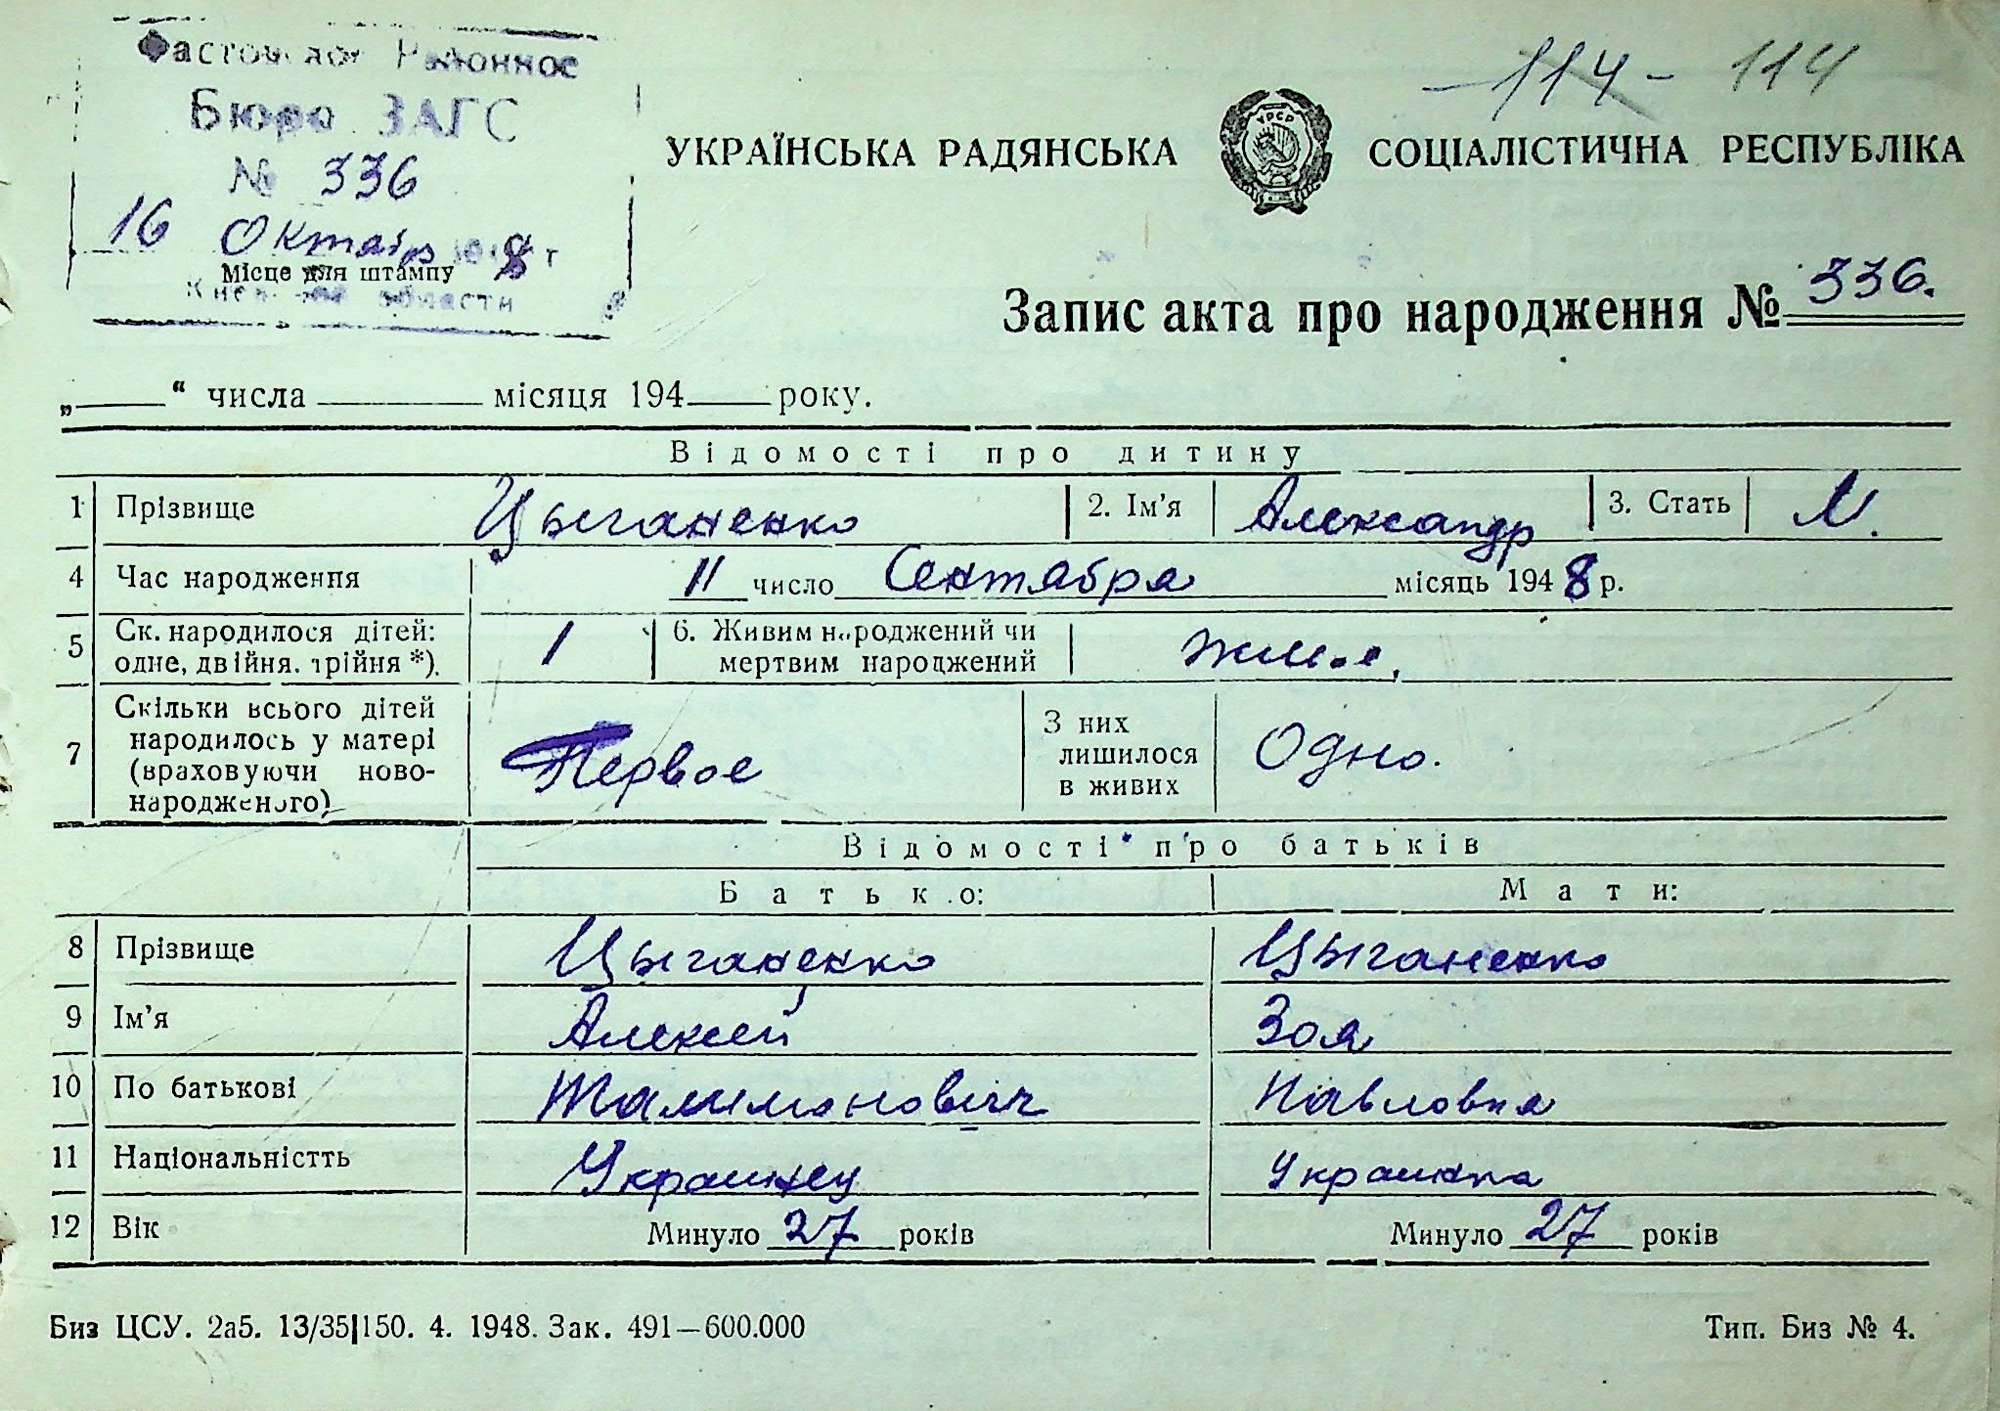 Районное
Бюро ЗАГС
№ 336
16 Октябр 8 г
Місце для штампу
области
114 - 114
УКРАЇНСЬКА РАДЯНСЬКА СОЦІАЛІСТИЧНА РЕСПУБЛІКА
УРСР
Запис акта про народження № 336.
„____“ числа ____ місяця 194__ року.
Відомості про дитину
1 Прізвище Цыганенко 2. Ім'я Александр 3. Стать М.
4 Час народження 11 число Сентября місяць 1948 р.
5 Ск. народилося дітей: одне, двійня. трійня *). 1 6. Живим народжений чи мертвим народжений
7 Скільки всього дітей народилось у матері (враховуючи новонародженого) Первое З них лишилося в живих Одно.
Відомості про батьків
Батько: Мати:
8 Прізвище Цыганенко Цыганенко
9 Ім'я Алексей Зоя
10 По батькові Павловна
11 Національністть Украинец Украинка
12 Вік Минуло 27 років Минуло 27 років
Биз ЦСУ. 2а5. 13/35|150. 4. 1948. Зак. 491—600.000 Тип. Биз № 4.